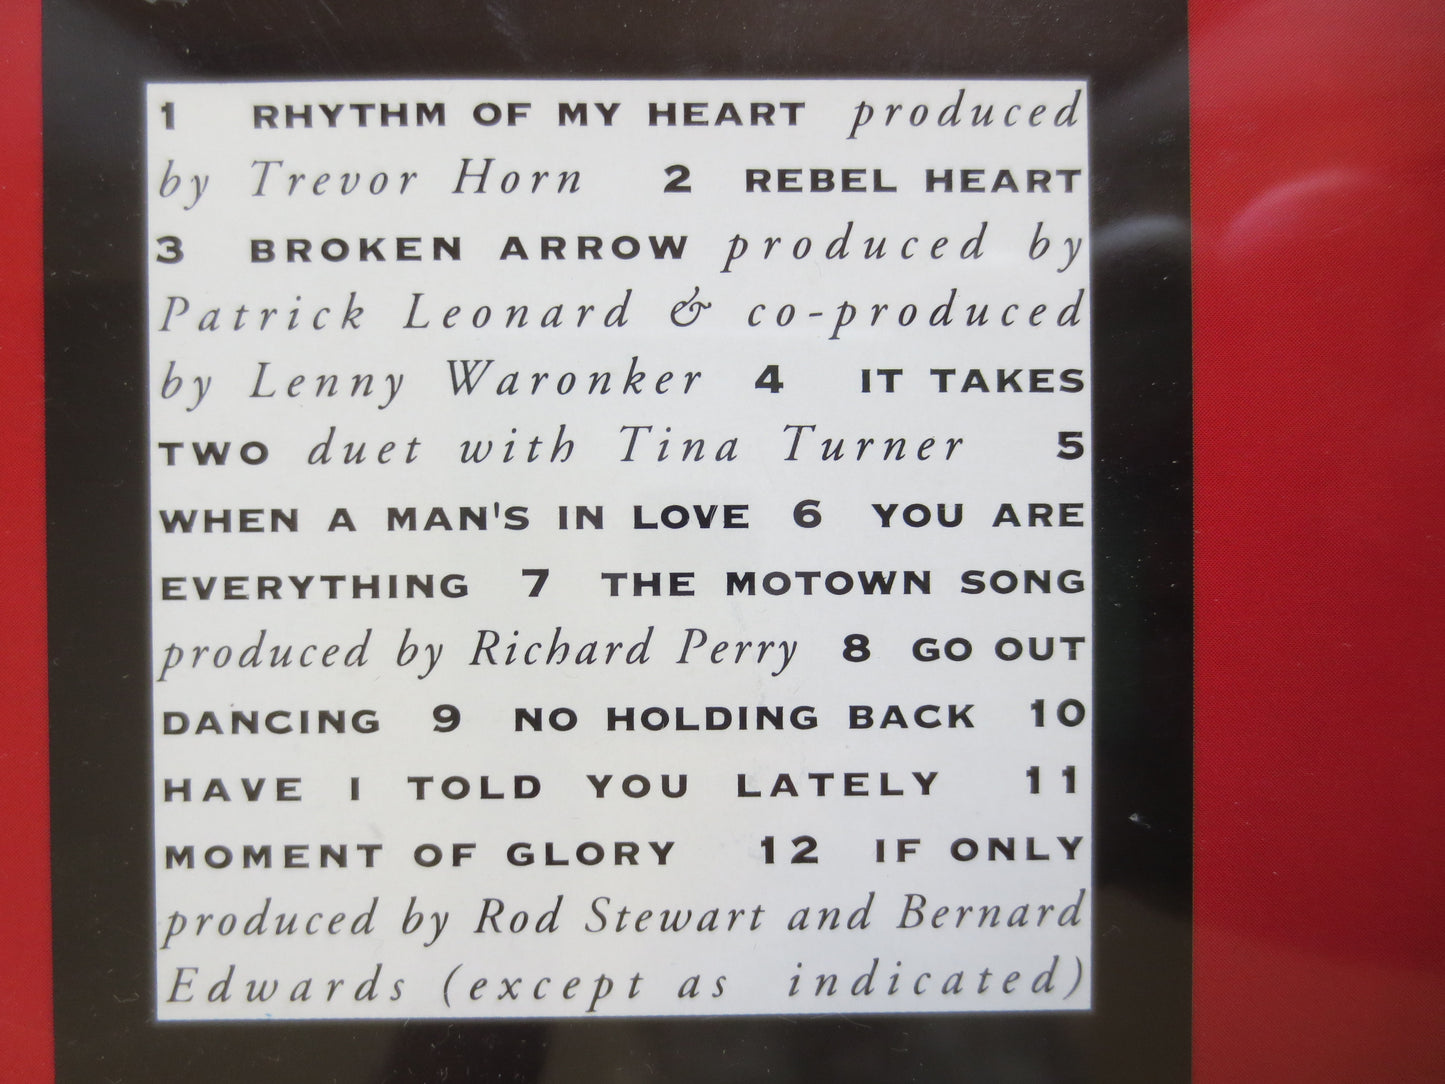 1 RHYTHM OF MY HEART produced
by Trevor Horn 2 REBEL HEART
3 BROKEN ARROW produced by
Patrick Leonard & co-produced
by Lenny Waronker 4 IT TAKES
TWO duet with Tina Turner 5
WHEN A MAN'S IN LOVE 6 YOU ARE
EVERYTHING 7 THE MOTOWN SONG
produced by Richard Perry 8 GO OUT
DANCING 9 NO HOLDING BACK 10
HAVE I TOLD YOU LATELY 11
MOMENT OF GLORY 12 IF ONLY
produced by Rod Stewart and Bernard
Edwards (except as indicated)